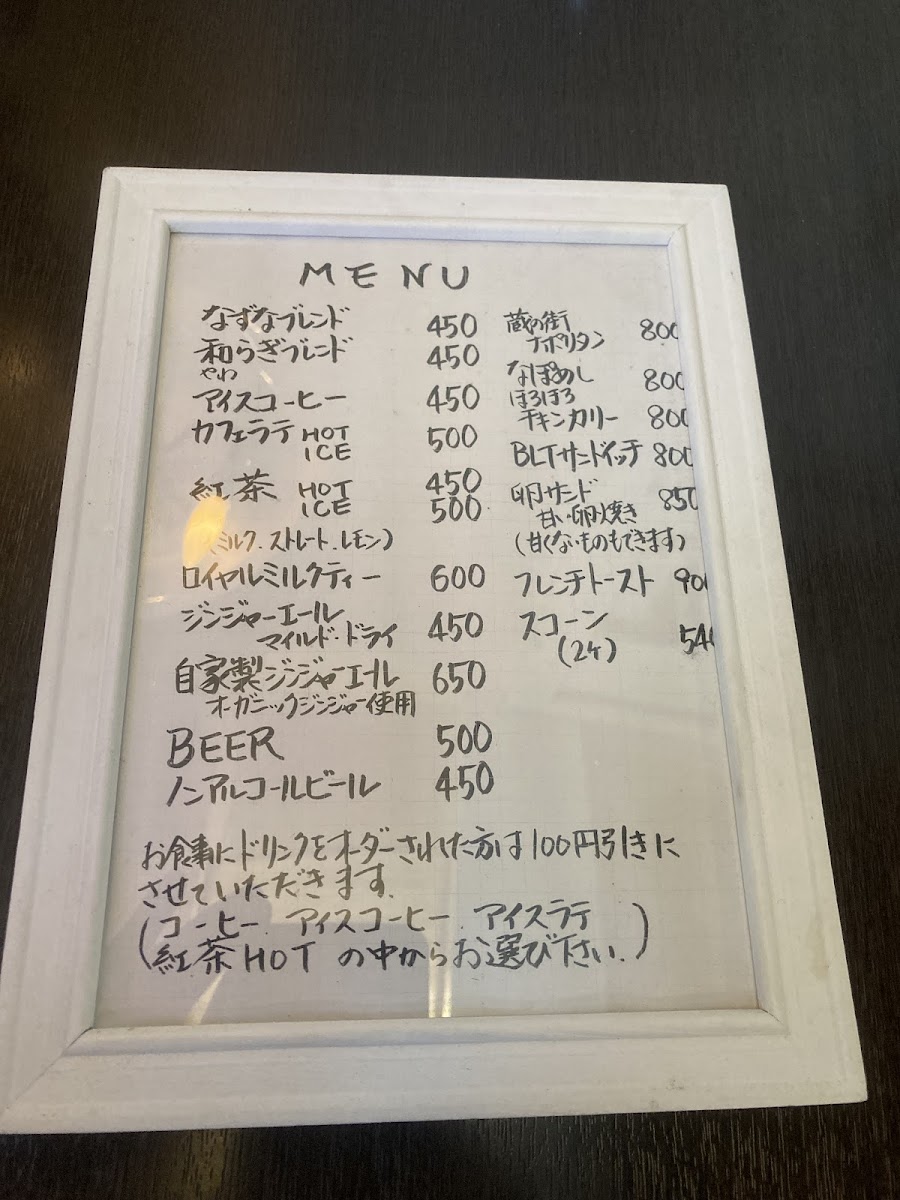 MENU
なずなブレンド 450
和らぎブレンド 450
やわ
アイスコーヒー 450
カフェラテ HOT 500
ICE
紅茶 HOT 450
ICE 500
(ミルク.ストレート.レモン)
ロイヤルミルクティー 600
ジンジャーエール
マイルド・ドライ 450
自家製ジンジャーエール 650
オーガニックジンジャー使用
BEER 500
ノンアルコールビール 450
蔵の街
ナポリタン 800
なぽめし 800
ほろほろ
チキンカリー 800
BLTサンドイッチ 800
卵サンド 850
甘い卵焼き
(甘くないものもできます)
フレンチトースト 900
スコーン
(2ケ) 540
お食事にドリンクをオーダーされた方は100円引きに
させていただきます.
(コーヒー.アイスコーヒー.アイスラテ
紅茶HOT の中からお選び下さい.)